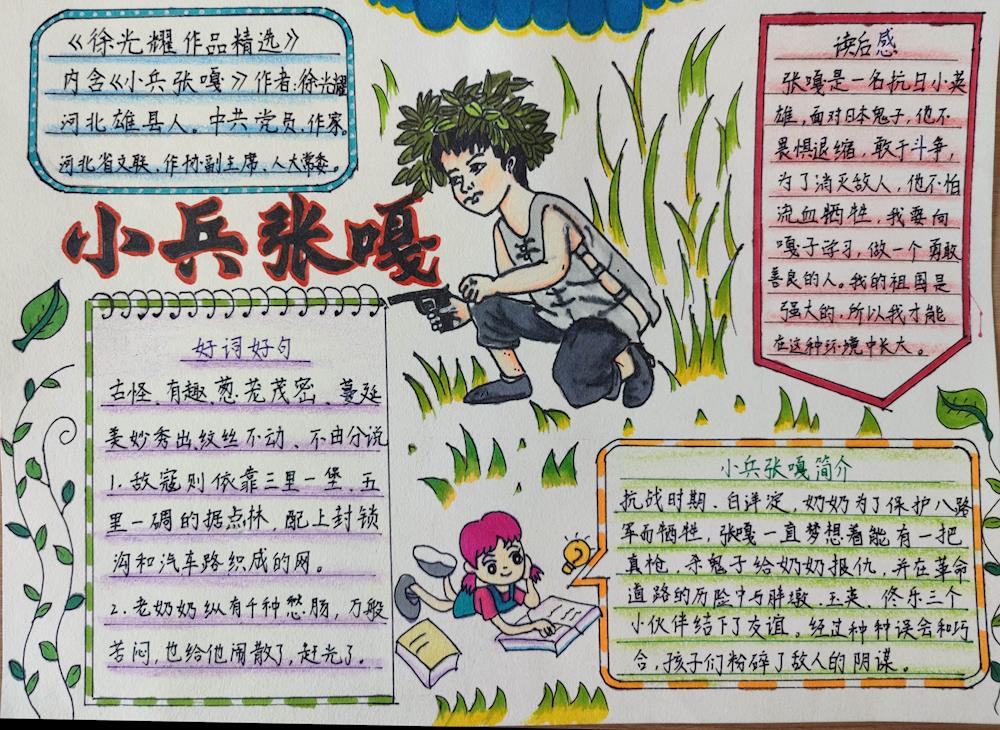 《徐光耀作品精选》
内含《小兵张嘎》作者:徐光耀
河北雄县人。中共党员、作家。
河北省文联、作协副主席、人大常委。
小兵张嘎
好词好句
古怪、有趣、葱茏茂密、蔓延
美妙秀出、纹丝不动、不由分说
1. 敌寇则依靠三里一堡、五
里一碉的据点林,配上封锁
沟和汽车路织成的网。
2. 老奶奶纵有千种愁肠,万般
苦闷,也给他闹散了,赶光了。
读后感
张嘎是一名抗日小英
雄,面对日本鬼子,他不
畏惧退缩,敢于斗争,
为了消灭敌人,他不怕
流血牺牲,我要向
嘎子学习,做一个勇敢
善良的人。我的祖国是
强大的,所以我才能
在这种环境中长大。
小兵张嘎简介
抗战时期、白洋淀,奶奶为了保护八路
军而牺牲,张嘎一直梦想着能有一把
真枪,杀鬼子给奶奶报仇,并在革命
道路的历险中与胖墩、玉英、佟乐三个
小伙伴结下了友谊。经过种种误会和巧
合,孩子们粉碎了敌人的阴谋。